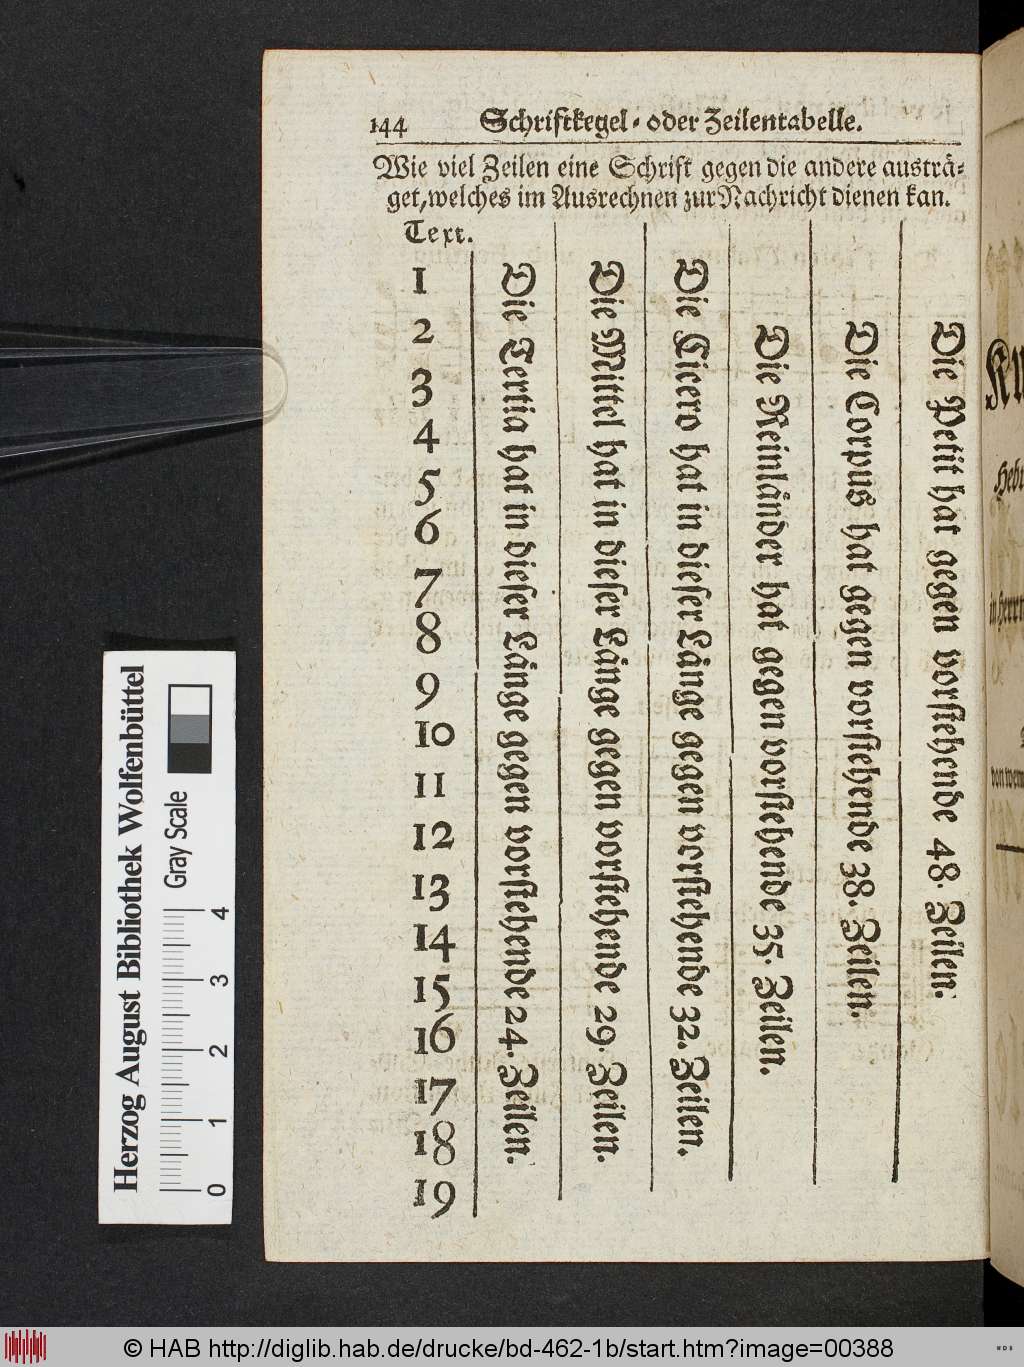 144 Schriftkegel- oder Zeilentabelle.
Wie viel Zeilen eine Schrift gegen die andere austrä-
get, welches im Ausrechnen zur Nachricht dienen kan.
Text.
1
2
3
4
5
6
7
8
9
10
11
12
13
14
15
16
17
18
19
Die Tertia hat in dieser Länge gegen vorstehende 24. Zeilen.
Die Mittel hat in dieser Länge gegen vorstehende 29. Zeilen.
Die Cicero hat in dieser Länge gegen vorstehende 32. Zeilen.
Die Reinländer hat gegen vorstehende 35. Zeilen.
Die Corpus hat gegen vorstehende 38. Zeilen.
Die Petit hat gegen vorstehende 48. Zeilen.
Herzog August Bibliothek Wolfenbüttel
Gray Scale
0 1 2 3 4
© HAB http://diglib.hab.de/drucke/bd-462-1b/start.htm?image=00388